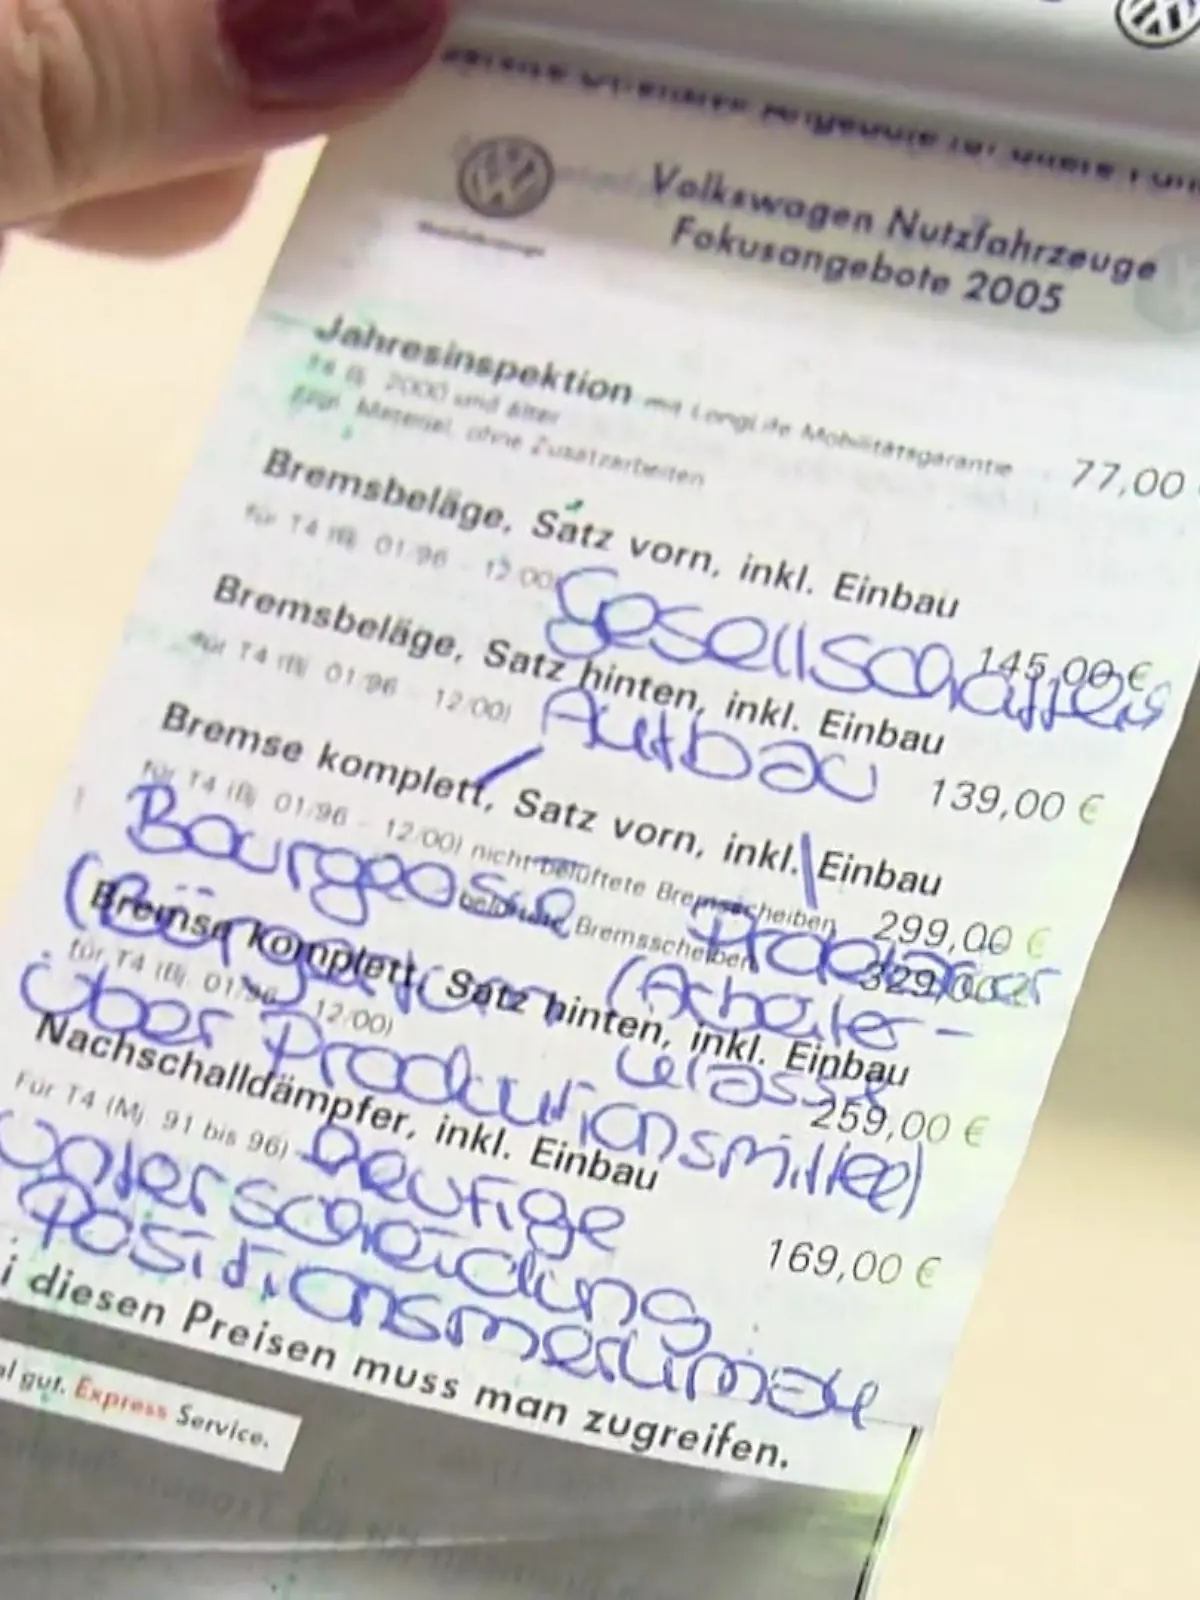 Volkswagen Nutzfahrzeuge
Fokusangebote 2005
Jahresinspektion mit LongLife Mobilitätsgarantie 77,00
T4 Bj. 2000 und älter
zzgl. Material, ohne Zusatzarbeiten
Bremsbeläge, Satz vorn, inkl. Einbau
für T4 (Bj. 01/96 - 12/00) 145,00 €
Gesellschaffts
Bremsbeläge, Satz hinten, inkl. Einbau
für T4 (Bj. 01/96 - 12/00) 139,00 €
Aufbau
Bremse komplett, Satz vorn, inkl. Einbau
für T4 (Bj. 01/96 - 12/00) nicht belüftete Bremsscheiben 299,00 €
belüftete Bremsscheiben 329,00 €
Bourgeosie
(Bürgertum (Arbeiter-
Bremse komplett, Satz hinten, inkl. Einbau
für T4 (Bj. 01/96 - 12/00) 259,00 €
klasse
über Produktionsmittel)
Nachschalldämpfer, inkl. Einbau
Für T4 (Mj. 91 bis 96) 169,00 €
Heutige
Unterscheidung
Positionsmerkmale
i diesen Preisen muss man zugreifen.
al gut. Express Service.